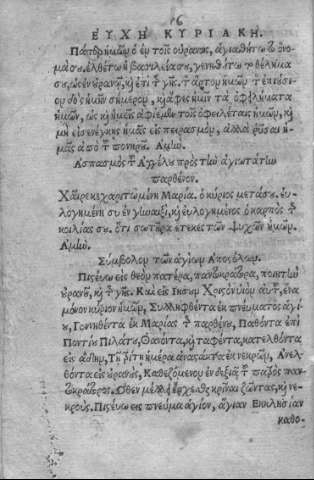 16
ΕΥΧΗ ΚΥΡΙΑΚΗ.
Πάτερ ἡμῶν ὁ ἐν τοῖς οὐρανοῖς, ἁγιασθήτω τὸ ὄνο-
μά σου, ἐλθέτω ἡ βασιλεία σου, γενηθήτω τὸ θέλημά
σου, ὡς ἐν οὐρανῷ, καὶ ἐπὶ τῆς γῆς. τὸν ἄρτον ἡμῶν τὸν ἐπιούσι-
ον δὸς ἡμῖν σήμερον, καὶ ἄφες ἡμῖν τὰ ὀφειλήματα
ἡμῶν, ὡς καὶ ἡμεῖς ἀφίεμεν τοῖς ὀφειλέταις ἡμῶν, καὶ
μὴ εἰσενέγκῃς ἡμᾶς εἰς πειρασμὸν, ἀλλὰ ῥῦσαι ἡ-
μᾶς ἀπὸ τοῦ πονηροῦ. Ἀμήν.
Ἀσπασμὸς τοῦ Ἀγγέλου πρὸς τὴν ἁγιωτάτην
παρθένον.
Χαῖρε κεχαριτωμένη Μαρία. ὁ κύριος μετὰ σοῦ. εὐ-
λογημένη σὺ ἐν γυναιξὶ, καὶ εὐλογημένος ὁ καρπὸς τῆς
κοιλίας σου. ὅτι σωτῆρα ἔτεκες τῶν ψυχῶν ἡμῶν.
Ἀμήν.
Σύμβολον τῶν ἁγίων Ἀποστόλων.
Πιστεύω εἰς θεὸν πατέρα, παντοκράτορα, ποιητὴν
οὐρανοῦ, καὶ τῆς γῆς. Καὶ εἰς Ἰησοῦν Χριστὸν υἱὸν αὐτοῦ, ἕνα
μόνον κύριον ἡμῶν, Συλληφθέντα ἐκ πνεύματος ἁγί-
ου, Γεννηθέντα ἐκ Μαρίας τῆς παρθένου, Παθόντα ἐπὶ
Ποντίου Πιλάτου, Θανόντα, καὶ ταφέντα, κατελθόντα
εἰς ᾅδην, Τῇ τρίτῃ ἡμέρᾳ ἀναστάντα ἐκ νεκρῶν, Ἀνελ-
θόντα εἰς οὐρανοὺς, Καθεζόμενον ἐν δεξιᾷ τοῦ πατρὸς παν-
τοκράτορος. Ὅθεν μέλλει ἔρχεσθαι κρῖναι ζῶντας, καὶ νε-
κρούς. Πιστεύω εἰς πνεῦμα ἅγιον, ἁγίαν Ἐκκλησίαν
καθο-